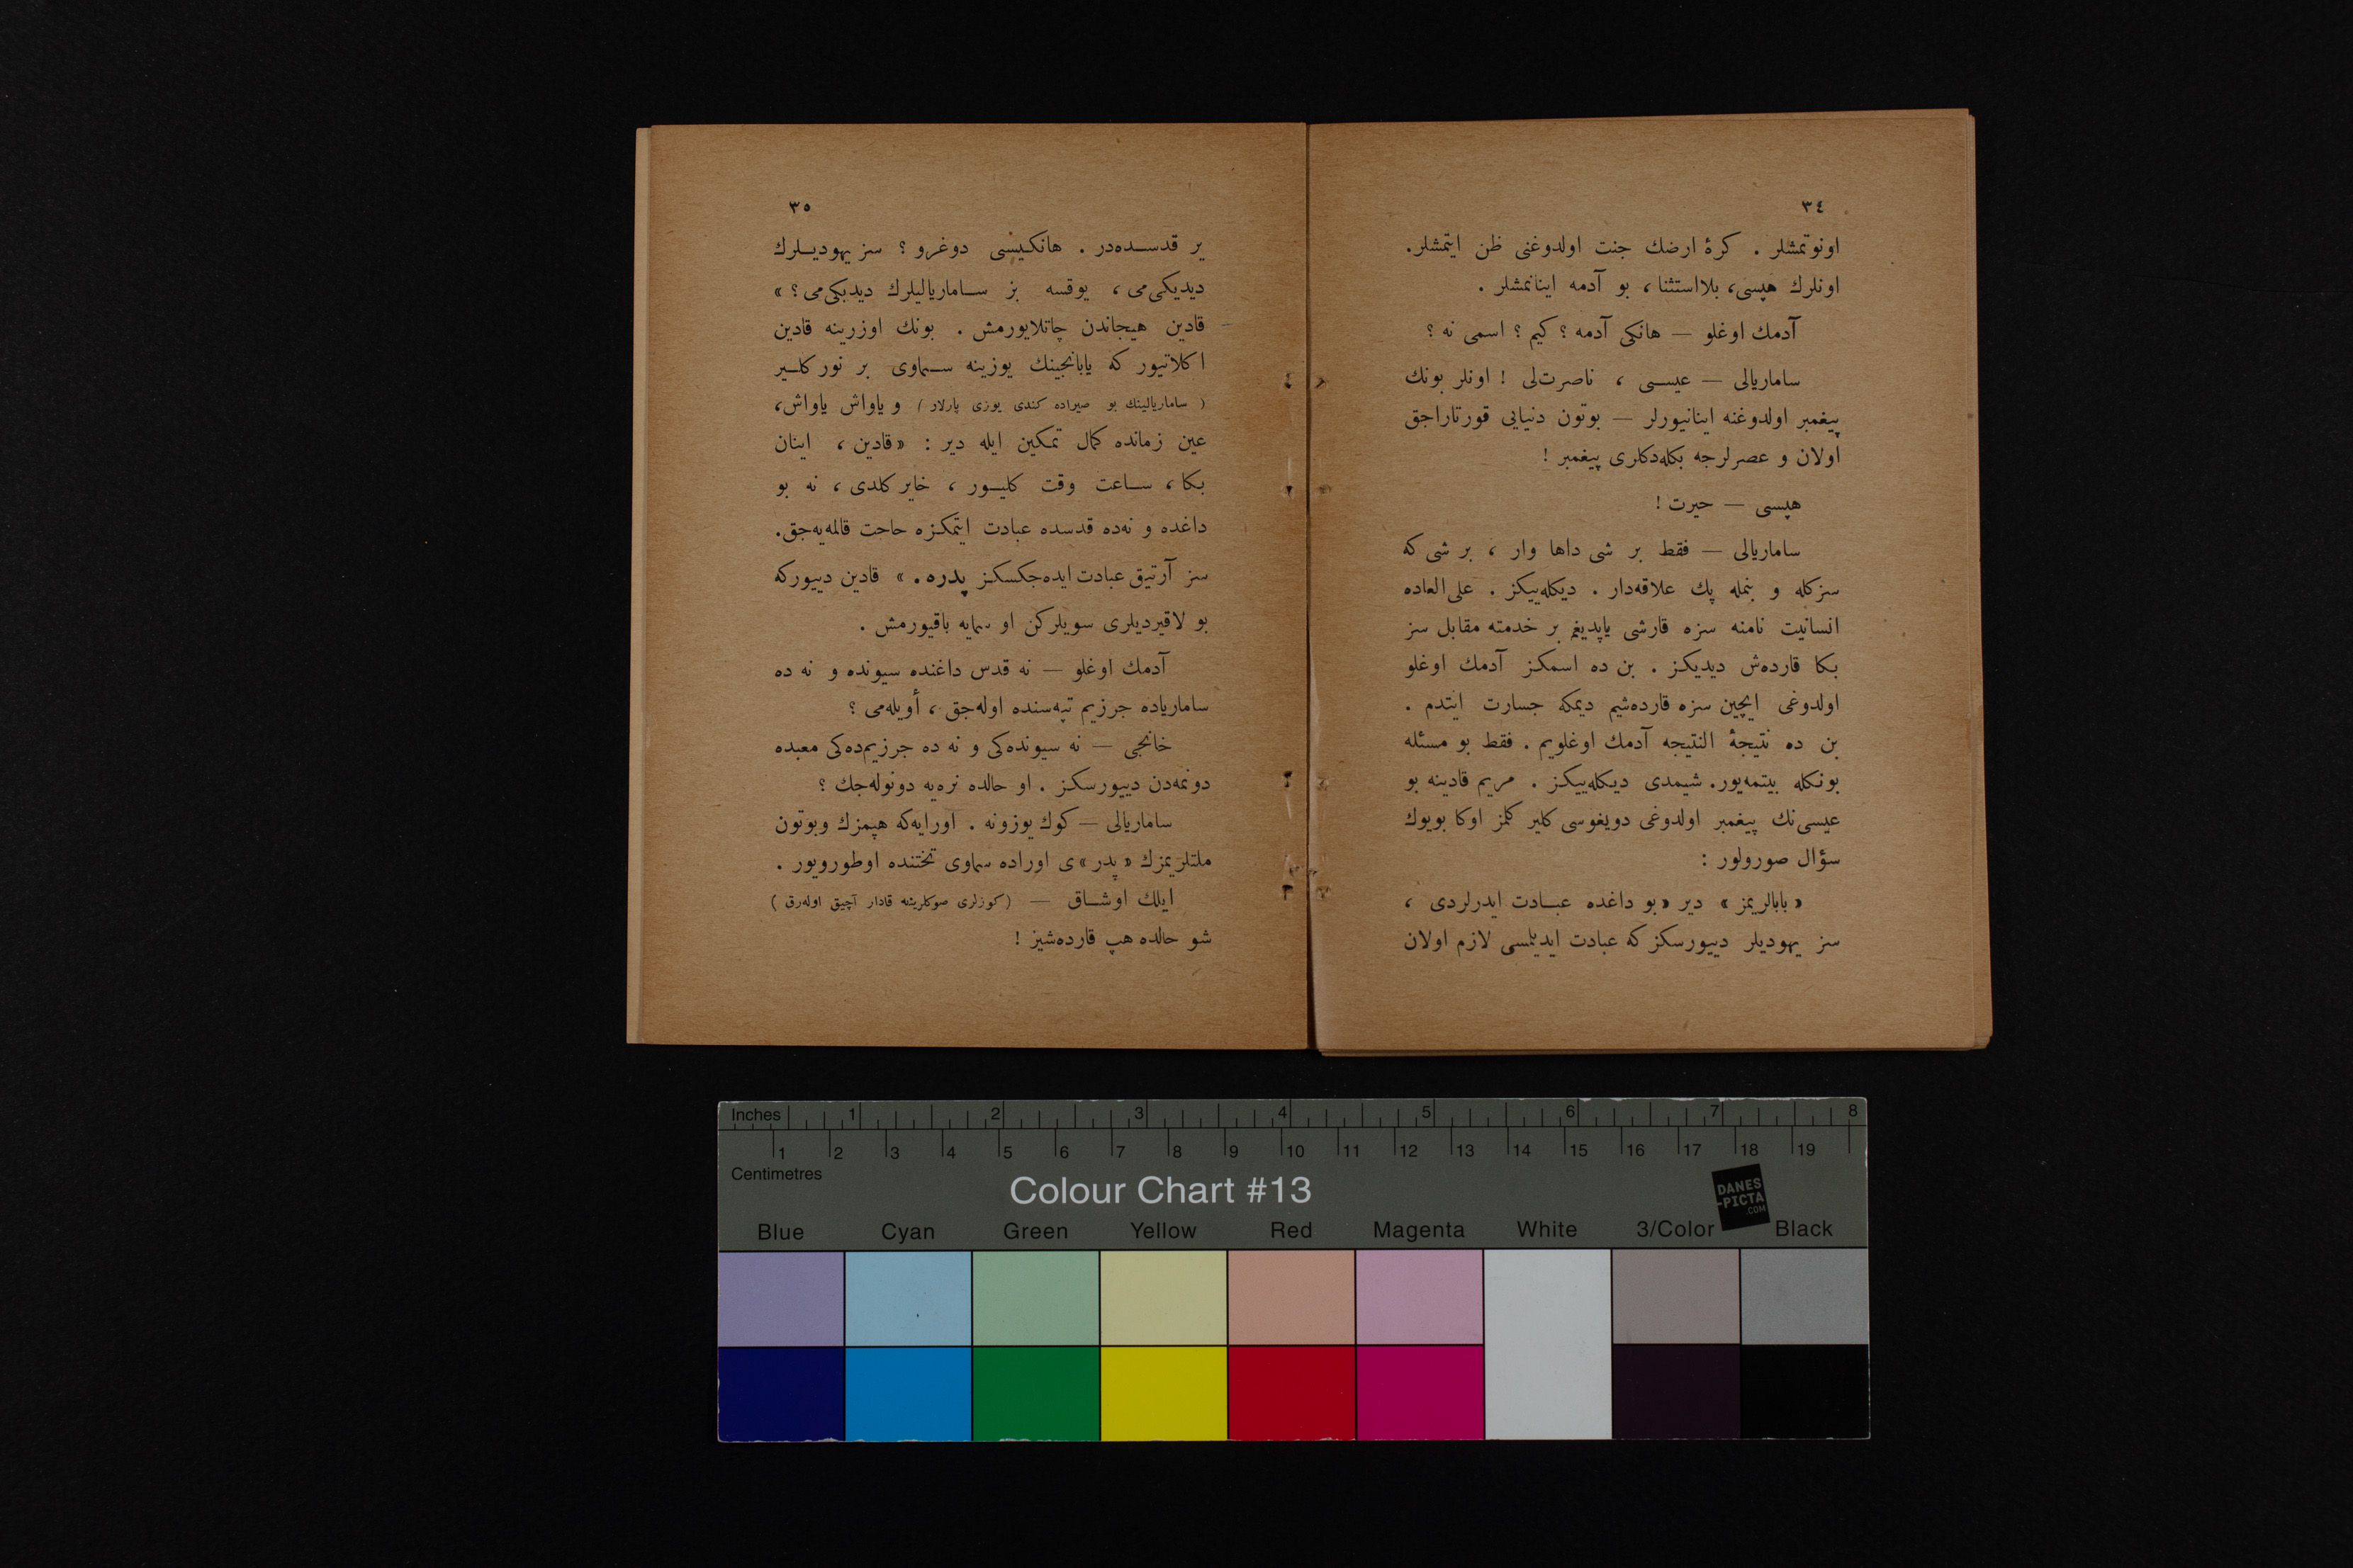 ٣٤
اونوتمشلر . كرۀ ارضك جنت اولدوغنى ظن ايتمشلر.
اونلرك هپسى، بلااستثنا، بو آدمه اينانمشلر .
آدمك اوغلو — هانكى آدمه ؟ كيم ؟ اسمى نه ؟
ساماريالى — عيسى ، ناصرت‌لى ! اونلر بونك
پيغمبر اولدوغنه اينانيورلر — بوتون دنيايى قورتاراجق
اولان و عصرلرجه بكله‌دكلرى پيغمبر !
هپسى — حيرت !
ساماريالى — فقط بر شى داها وار ، بر شى كه
سزكله و بنمله پك علاقه‌دار . ديكله‌ييكز . على‌العاده
انسانيت نامنه سزه قارشى ياپديغم بر خدمته مقابل سز
بكا قارده‌ش ديديكز . بن ده اسمكز آدمك اوغلو
اولدوغى ايچين سزه قارده‌شيم ديمكه جسارت ايتدم .
بن ده نتيجۀ النتيجه آدمك اوغلويم . فقط بو مسئله
بونكله بيتمه‌يور. شيمدى ديكله‌ييكز . مريم قادينه بو
عيسى‌نك پيغمبر اولدوغى دويغوسى كلير كلمز اوكا بويوك
سؤال صورولور :
« بابالريمز » دير « بو داغده عبادت ايدرلردى ،
سز يهوديلر دييورسكز كه عبادت ايديلمسى لازم اولان
٣٥
ير قدسده‌در . هانكيسى دوغرو ؟ سز يهوديلرك
ديديكى‌مى ، يوقسه بز سامارياليلرك ديديكى‌مى ؟ »
قادين هيجاندن چاتلايورمش . بونك اوزرينه قادين
اكلاتيور كه يابانجينك يوزينه سماوى بر نور كلير
( ساماريالينك بو صيراده كندى يوزى پارلار ) و ياواش ياواش،
عين زمانده كمال تمكين ايله دير : « قادين ، اينان
بكا ، ساعت وقت كليور ، خاير كلدى ، نه بو
داغده و نه‌ده قدسده عبادت ايتمكزه حاحت قالمه‌يه‌جق.
سز آرتيق عبادت ايده‌جكسكز پدره. » قادين دييوركه
بو لاقيرديلرى سويلركن او سمايه باقيورمش .
آدمك اوغلو — نه قدس داغنده سيونده و نه ده
سامارياده جرزيم تپه‌سنده اوله‌جق ، أويله‌مى ؟
خانجى — نه سيونده‌كى و نه ده جرزيم‌ده‌كى معبده
دونمه‌دن دييورسكز . او حالده نره‌يه دونوله‌جك ؟
ساماريالى — كوك يوزونه . اورايه‌كه هپمزك وبوتون
ملتلريمزك « پدر » ى اوراده سماوى تختنده اوطورويور .
ايلك اوشاق — ( كوزلرى صوكلرينه قادار آچيق اوله‌رق )
شو حالده هپ قارده‌شيز !
Inches 1 2 3 4 5 6 7 8
1 2 3 4 5 6 7 8 9 10 11 12 13 14 15 16 17 18 19
Centimetres
Colour Chart #13
DANES
-PICTA
.COM
Blue Cyan Green Yellow Red Magenta White 3/Color Black